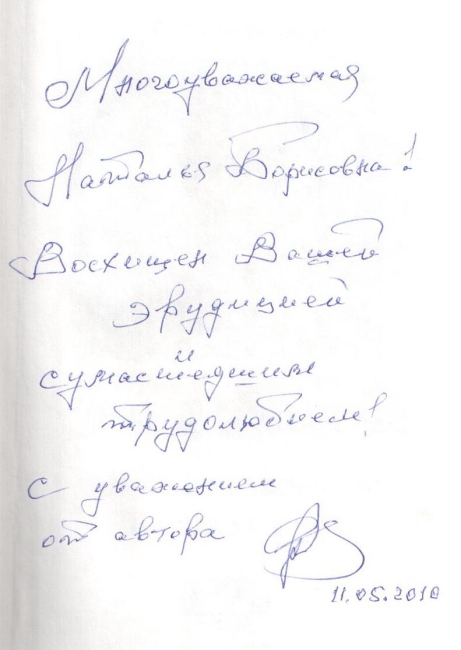 Многоуважаемая
Наталья Борисовна!
Восхищен Вашей
эрудицией
и
сумасшедшим
трудолюбием!
С уважением
от автора
11.05.2010